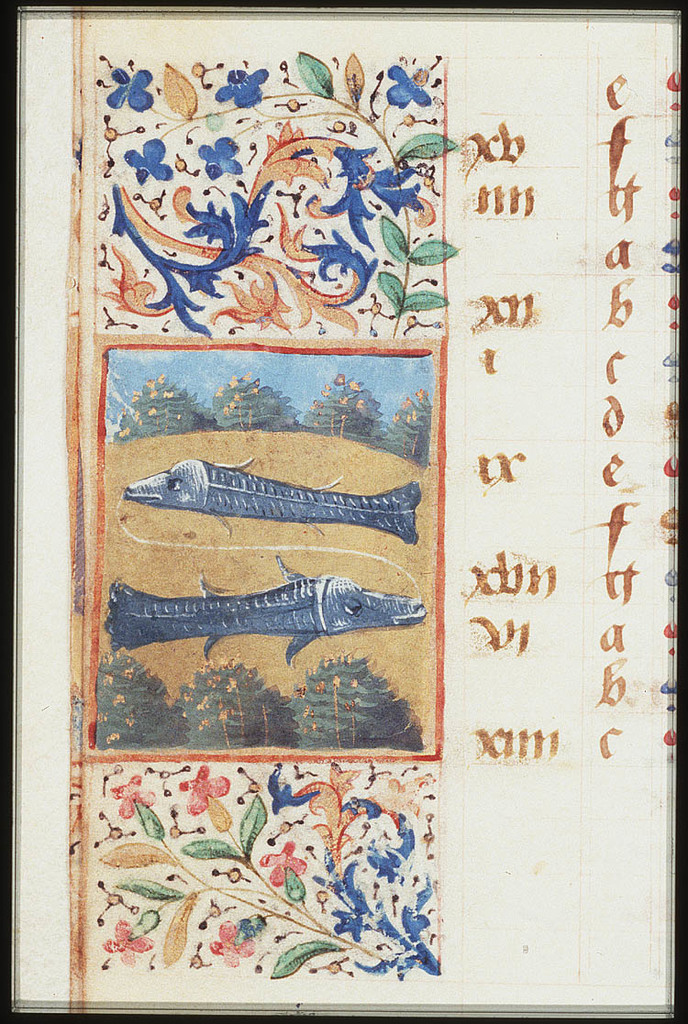 e
xv f
iiii g
a
xii b
i c
d
ix e
f
xvii g
vi a
b
xiiii c